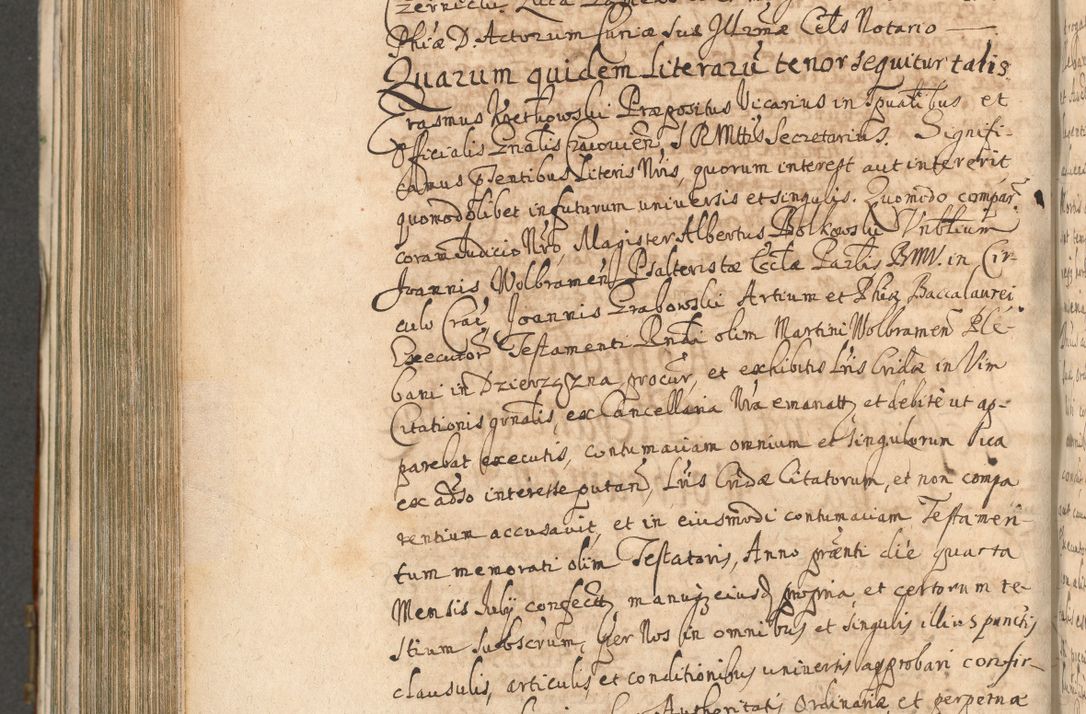 Phiæ D. Actorum huius sus Jllrmæ Cels Notario
Quarum quidem Literarū tenor sequitur talis
Erasmus Kretkowski Præpositus Vicarius in Spualibus et
Officialis Gnalis Cracovien, S R Mttis Secretarius. Signifi-
camus pսntibus Literis Nris, quorum interest aut intererit
quomodolibet in futurum universis et singulis. Quomodo compar.
coram Judicio Nrō, Magister Albertus Bolkowski Vnbtium
Joannis Wolbramen Psalteristæ Ecclæ Parlis BMV. in Cir-
culo Crac, Joannis Grabowski Artium et Phiæ Baccalaurei
Executor Testamenti Rndi olim Martini Wolbramen Ple-
bani in Dzierzązna procur, et exhibitis Lris Cridæ in Vim
Citationis gnalis, ex Cancellaria Nra emanatt, et debitè ut ap-
parebat executis, contumaciam omnium et singulorum Pica
ex adso interesse putan, Lris Cridæ Citatorum, et non compa
rentium accusavit, et in eiusmodi contumaciam Testamen-
tum memorati olim Testatoris, Anno prænti die quarta
Mensis Julij confectt, manuq eiusd propria, et certorum te-
stium subscrum, per Nos in omnibus et singulis illius punctis
clausulis, articulis et conditionibus universis approbari confir-
Authoritatis Ordinariæ et perpetuæ